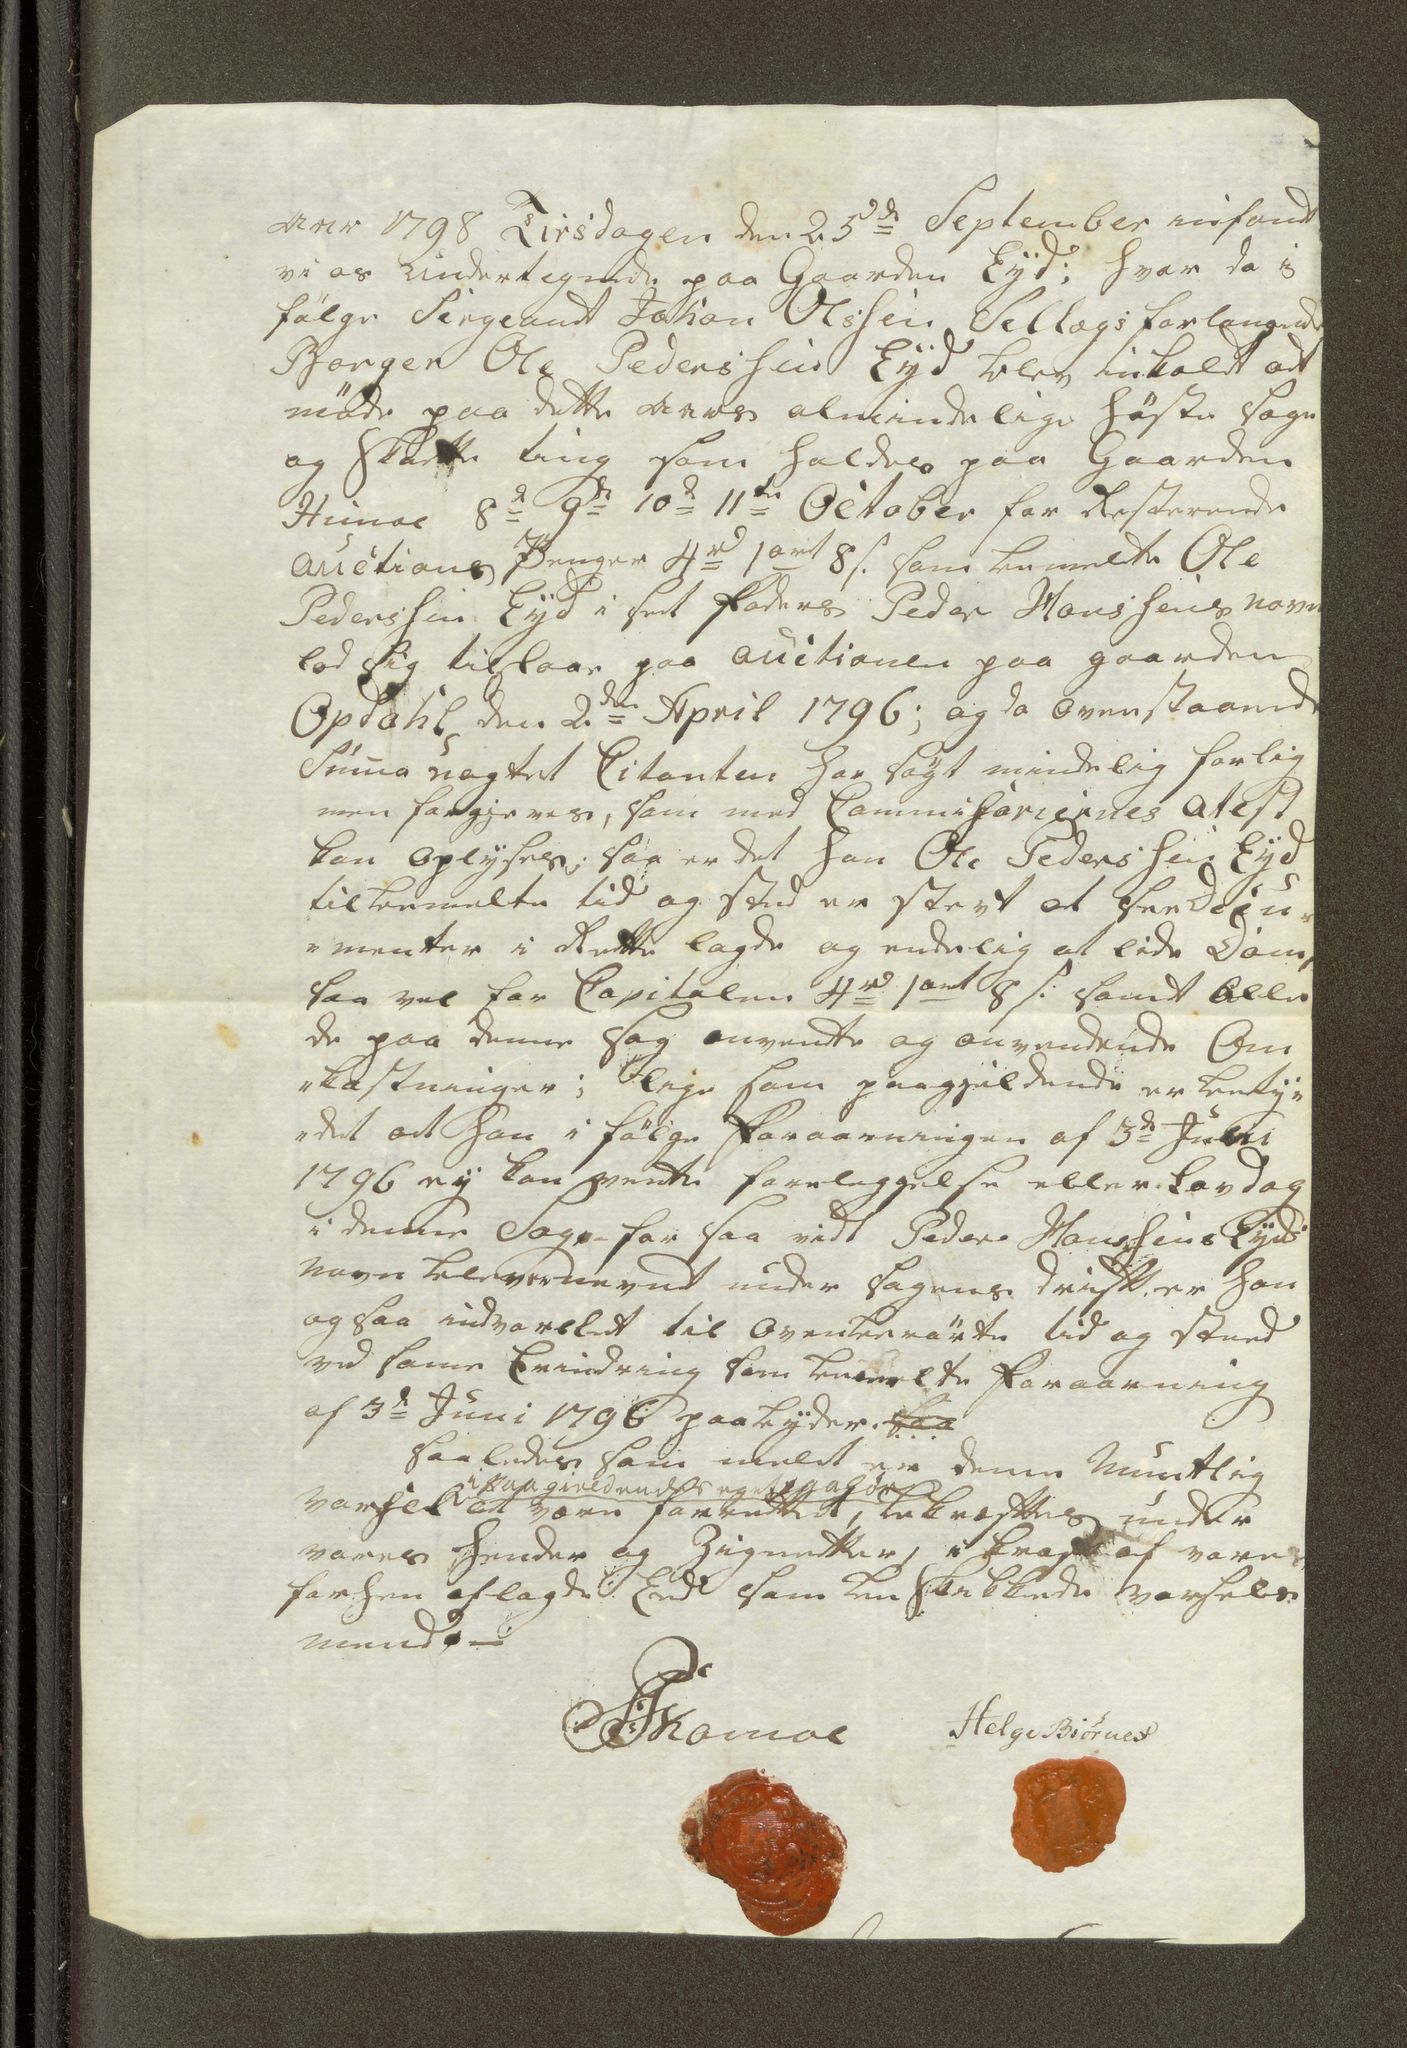 Aar 1798 Tirsdagen den 25de September infandt
vi os undertegnede paa Gaarden Eÿd; hvor da i
fölge Siergeandt Johan Olssen Sellægs forlangende
Borger Ole Pederssen Eÿd blev inkaldt at
möde paa dette Aars almindelige Höste Sage
og Skatte ting som holdes paa Gaarden
Hunæe 8d 9de 10d 11te October for Resterende
Auctions Penger 4rd 1ort 8s. som bemelte Ole
Pederssen Eÿd i sit Faders Peder Monssens navn
lod sig tilslaae paa Auctionen paa gaarden
Opdahl den 2den April 1796; og da ovenstaaende
Suma uagtet Citanten har sögt mindelig forlig
men forgjeves, som med Commissariernes Atest
kan oplyses; saa er det han Ole Pederssen Eÿd
til bemelte tid og sted er stevt at see Docu-
"menter i Rette lagde og endelig at lide Dom,
saa vel for Capitalen 4rd 1ort 8s: samt alle
de paa denne Sag anvendte og anvendende Om
"kostninger; lige som paagjeldende er betÿ"
"det at han i fölge Foraarningen af 3de Juni
1796 eÿ kan vente forelæggelse eller Lavdag
i denne Sag. for saa vidt Peder Monssens Eÿds
Navn bliver nevnt under sagens drift. er han
ogsaa indvarslet til ovenberörte tid og steed
ved same Erindring som bemelte Foraarning
af 3d Juni 1796 paabyder. saa
saaledes som meldt er denne Muntlig
i Paagieldendes eget paahör
Varsel at være forrettet, bekræftes under
vores Hender og Zignetter, i kraft af vores
forhen aflagde Eed som beskikkede varsels
mend. —
Skomoe Helge Biörnes